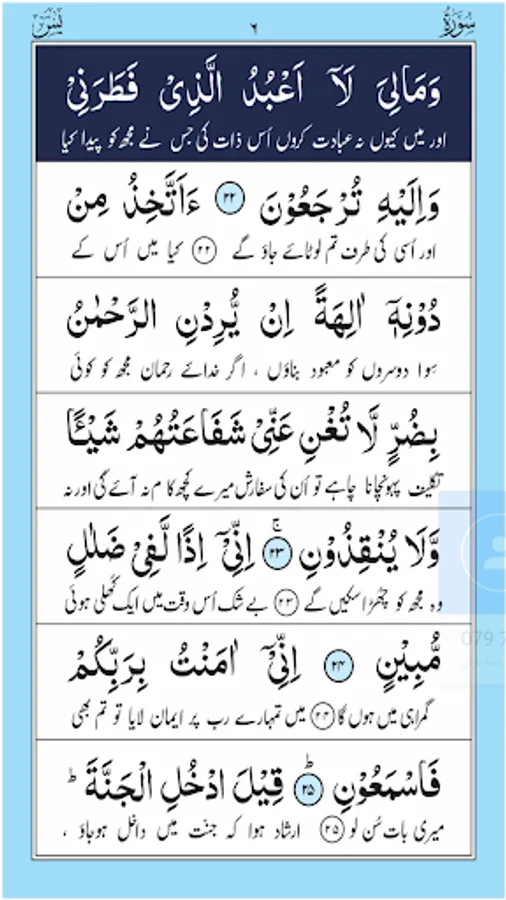 سورة ٦ يٰسٓ
وَمَالِیَ لَاۤ اَعْبُدُ الَّذِیْ فَطَرَنِیْ
اور میں کیوں نہ عبادت کروں اُس ذات کی جس نے مجھ کو پیدا کیا
وَاِلَیْهِ تُرْجَعُوْنَ ۲۲ ءَاَتَّخِذُ مِنْ
اور اُسی کی طرف تم لوٹائے جاؤ گے ۲۲ کیا میں اُس کے
دُوْنِهٖۤ اٰلِهَةً اِنْ یُّرِدْنِ الرَّحْمٰنُ
سِوا دوسروں کو معبود بناؤں ، اگر خدائے رحمان مجھ کو کوئی
بِضُرٍّ لَّا تُغْنِ عَنِّیْ شَفَاعَتُهُمْ شَیْـًٔا
تکلیف پہونچانا چاہے تو اُن کی سفارش میرے کچھ کام نہ آئے گی اور نہ
وَّلَا یُنْقِذُوْنِ ۚ ۲۳ اِنِّیْۤ اِذًا لَّفِیْ ضَلٰلٍ
وہ مجھ کو چھڑا سکیں گے ۲۳ بے شک اُس وقت میں ایک کُھلی ہوئی
مُّبِیْنٍ ۲۴ اِنِّیْۤ اٰمَنْتُ بِرَبِّكُمْ
گمراہی میں ہوں گا ۲۴ میں تمہارے رب پر ایمان لایا تو تم بھی
فَاسْمَعُوْنِ ؕ ۲۵ قِیْلَ ادْخُلِ الْجَنَّةَ ؕ
میری بات سُن لو ۲۵ ارشاد ہوا کہ جنت میں داخل ہوجاؤ ،